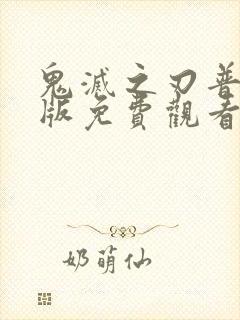 鬼滅之刃普
版免費觀看
奶萌仙